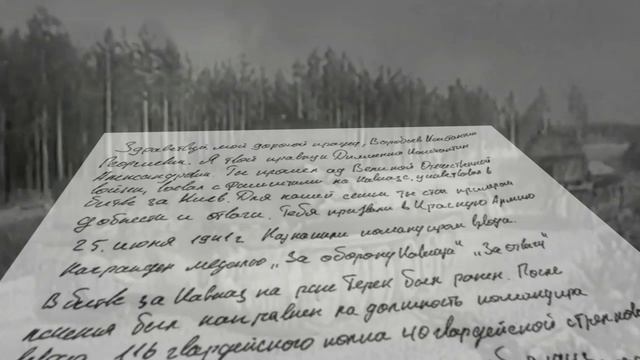 Здравствуй мой дорогой прадед, Воробьев Константин
Георгиевич. Я твой правнук Константин
Александрович. Ты прошел ад Великой Отечественной
войны, воевал с фашистами на Кавказе, участвовал в
битве за Киев. Для нашей семьи ты стал примером
доблести и отваги. Тебя призвали в Красную Армию
25 июня 1941г. Назначили командиром взвода.
Награжден медалью „За оборону Кавказа" „За отвагу"
В битве за Кавказ на реке Терек был ранен. После
лечения был направлен на должность командира
взвода 116 гвардейского полка 40 гвардейской стрелковой